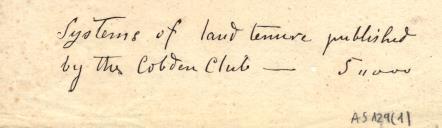 Systems of land tenure published
by the Cobden Club — 5„000
AS129(1)